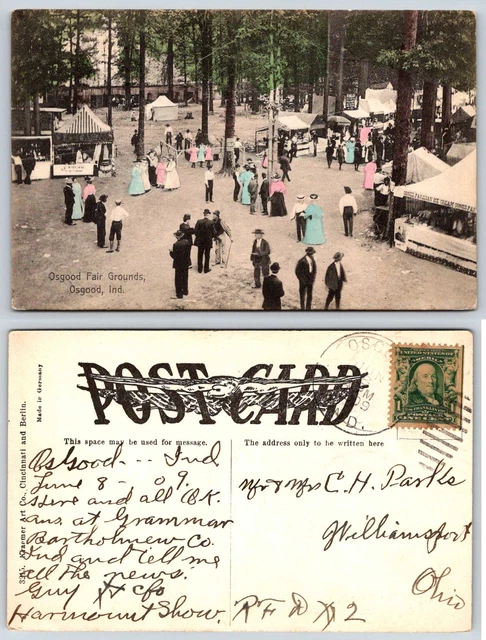 Osgood Fair Grounds,
Osgood, Ind.
POST CARD
This space may be used for message.
The address only to be written here
Made in Germany
Kraemer Art Co., Cincinnati and Berlin.
UNITED STATES OF
AMERICA
FRANKLIN
Osgood -- Ind
June 8 - , 09.
Here and all O.K.
ans. at Grammar
Bartholmew Co.
Ind and tell me
all the news.
Guy
Harmount Show.
Mr & Mrs C. H. Parks
Williamsport
Ohio
RFD # 2